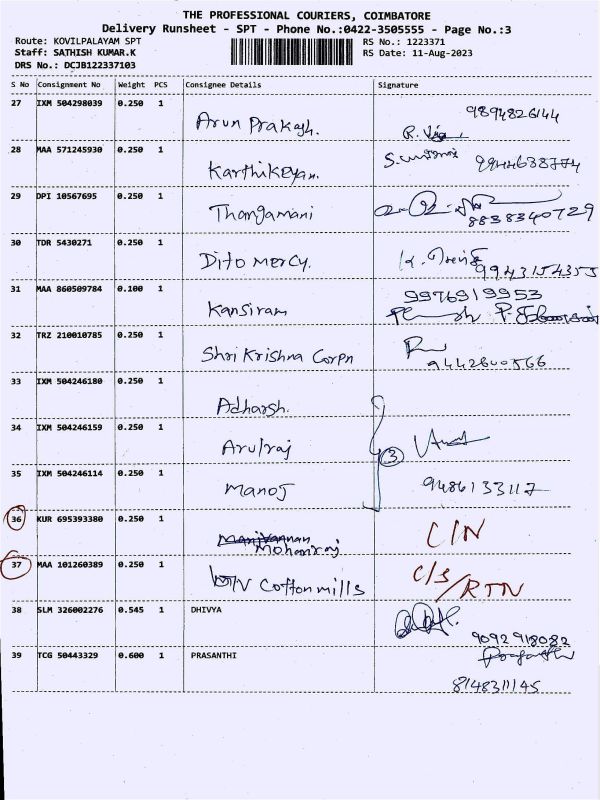 THE PROFESSIONAL COURIERS, COIMBATORE
Delivery Runsheet - SPT - Phone No.:0422-3505555 - Page No.:3
Route: KOVILPALAYAM SPT RS No.: 1223371
Staff: SATHISH KUMAR.K RS Date: 11-Aug-2023
DRS No.: DCJB122337103
S No Consignment No Weight PCS Consignee Details Signature
27 IXM 504298039 0.250 1 Arun Prakash. 9894826144
28 MAA 571245930 0.250 1 Karthikeyan. 9944638774
29 DPI 10567695 0.250 1 Thangamani 8838340729
30 TDR 5430271 0.250 1 Dito Mercy. 9943154355
31 MAA 860509784 0.100 1 Kansiram 9976919953
32 TRZ 210010785 0.250 1 Shri Krishna Corpn 9442600566
33 IXM 504246180 0.250 1 Adharsh.
34 IXM 504246159 0.250 1 Arulraj 3
35 IXM 504246114 0.250 1 Manoj 9486133117
36 KUR 695393380 0.250 1 Mohanraj C/N
37 MAA 101260389 0.250 1 Cotton mills C/S/RTN
38 SLM 326002276 0.545 1 DHIVYA 9092918082
39 TCG 50443329 0.600 1 PRASANTHI 8148311145